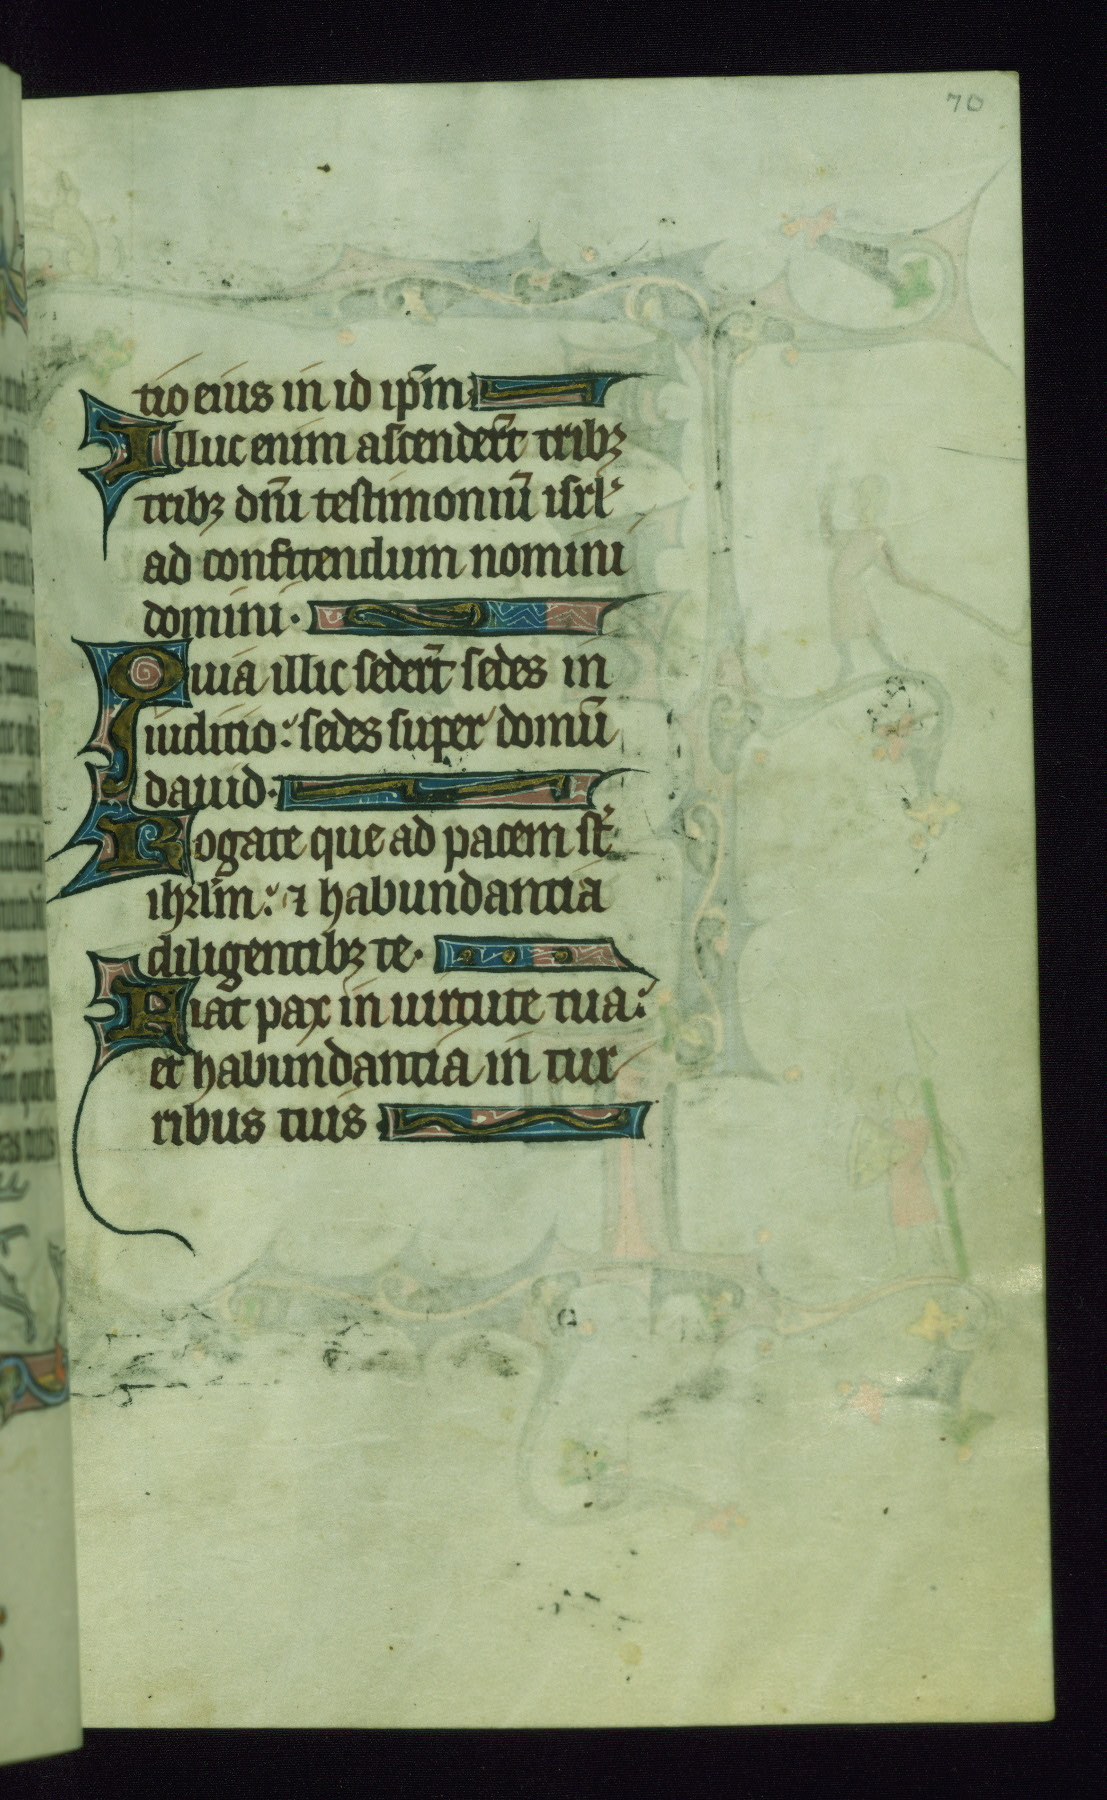 70
tio eius in id ip̄m
Illuc enim ascender̄t tribꝫ
tribꝫ dn̄i testimoniū isrl̛
ad confitendum nomini
domini.
Quia illic seder̄t sedes in
iuditio: sedes super domū
dauid:
Rogate que ad pacem st̄
ihrl̄m: ⁊ habundantia
diligentibꝫ te.
Fiat pax in uirtute tua:
et habundantia in tur
ribus tuis